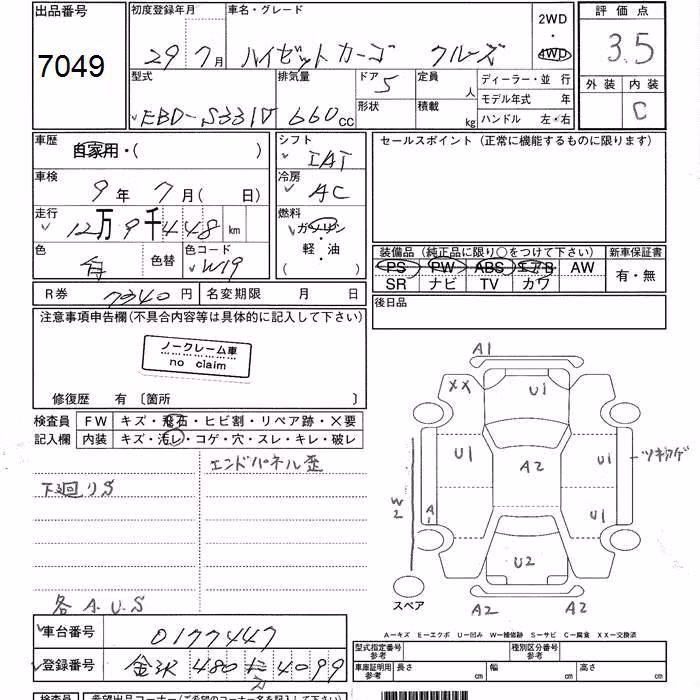 出品番号
7049
初度登録年月
29 7月
車名・グレード
ハイゼットカーゴ クルーズ
2WD
・
4WD
評価点
3.5
外装 内装
C
型式
EBD-S331V
排気量
660cc
ドア
5
形状
定員
人
積載
kg
ディーラー・並 行
モデル年式 年
ハンドル 左・右
車歴
自家用・( )
シフト
IAT
車検
9年 7月( 日)
冷房
AC
走行
12万9千448km
燃料
ガソリン
軽・油
( )
色
色替
色コード
W19
R券 7340円 名変期限 月 日
セールスポイント (正常に機能するものに限ります)
装備品 (純正品に限り○をつけて下さい)
新車保証書
PS PW ABS エアB AW
SR ナビ TV カワ
有・無
後日品
注意事項申告欄(不具合内容等は具体的に記入して下さい)
ノークレーム車
no claim
修復歴 有 〔箇所 〕
検査員
記入欄
FW キズ・飛石・ヒビ割・リペア跡・×要
内装 キズ・汚レ・コゲ・穴・スレ・キレ・破レ
エンドパネル歪
下廻りS
各A.U.S
A1
XX
U1
U1
A2
U1
ツキアゲ
W2
A1
U1
U2
スペア
A2
A2
A―キズ E―エクボ U―凹み W―補修跡 S―サビ C―腐食 XX―交換済
車台番号 0177447
登録番号 金沢 480 4099
型式指定番号
参考
種別区分番号
参考
車庫証明用
参考
長さ cm 幅 cm 高さ cm
検査員
希望出品コーナー